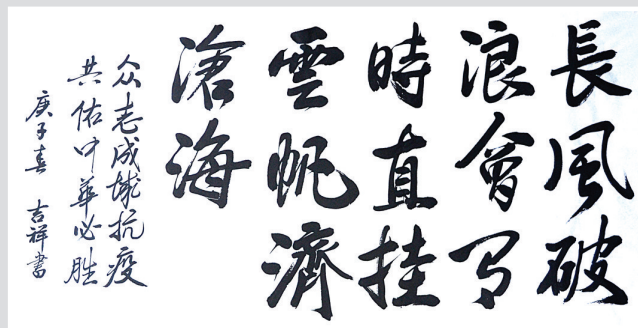 長風破
浪會有
時直挂
雲帆濟
滄海
众志成城抗疫
共佑中華必胜
庚子春 吉祥書